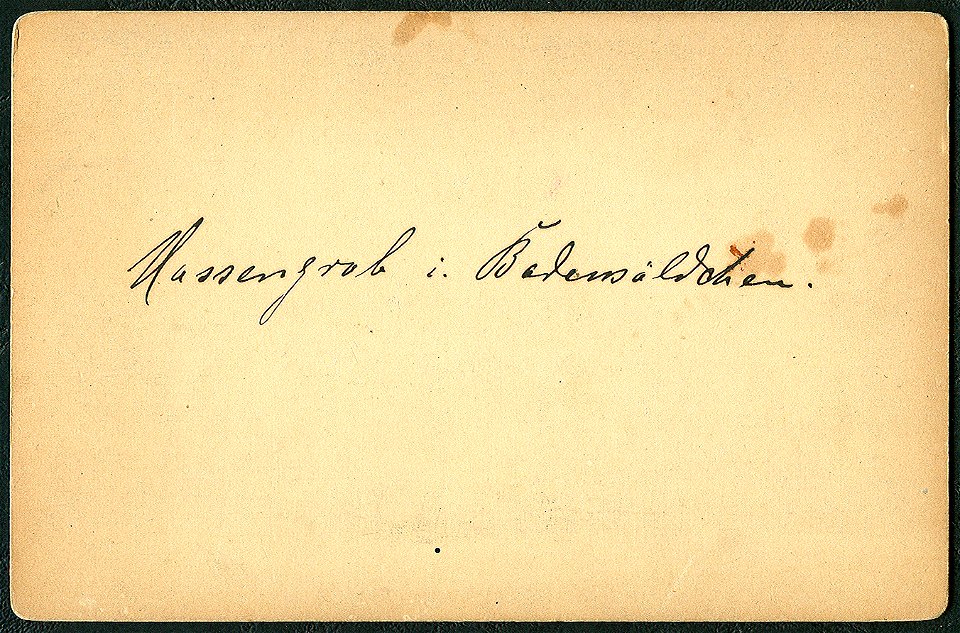 Massengrab i. Badenwäldchen.